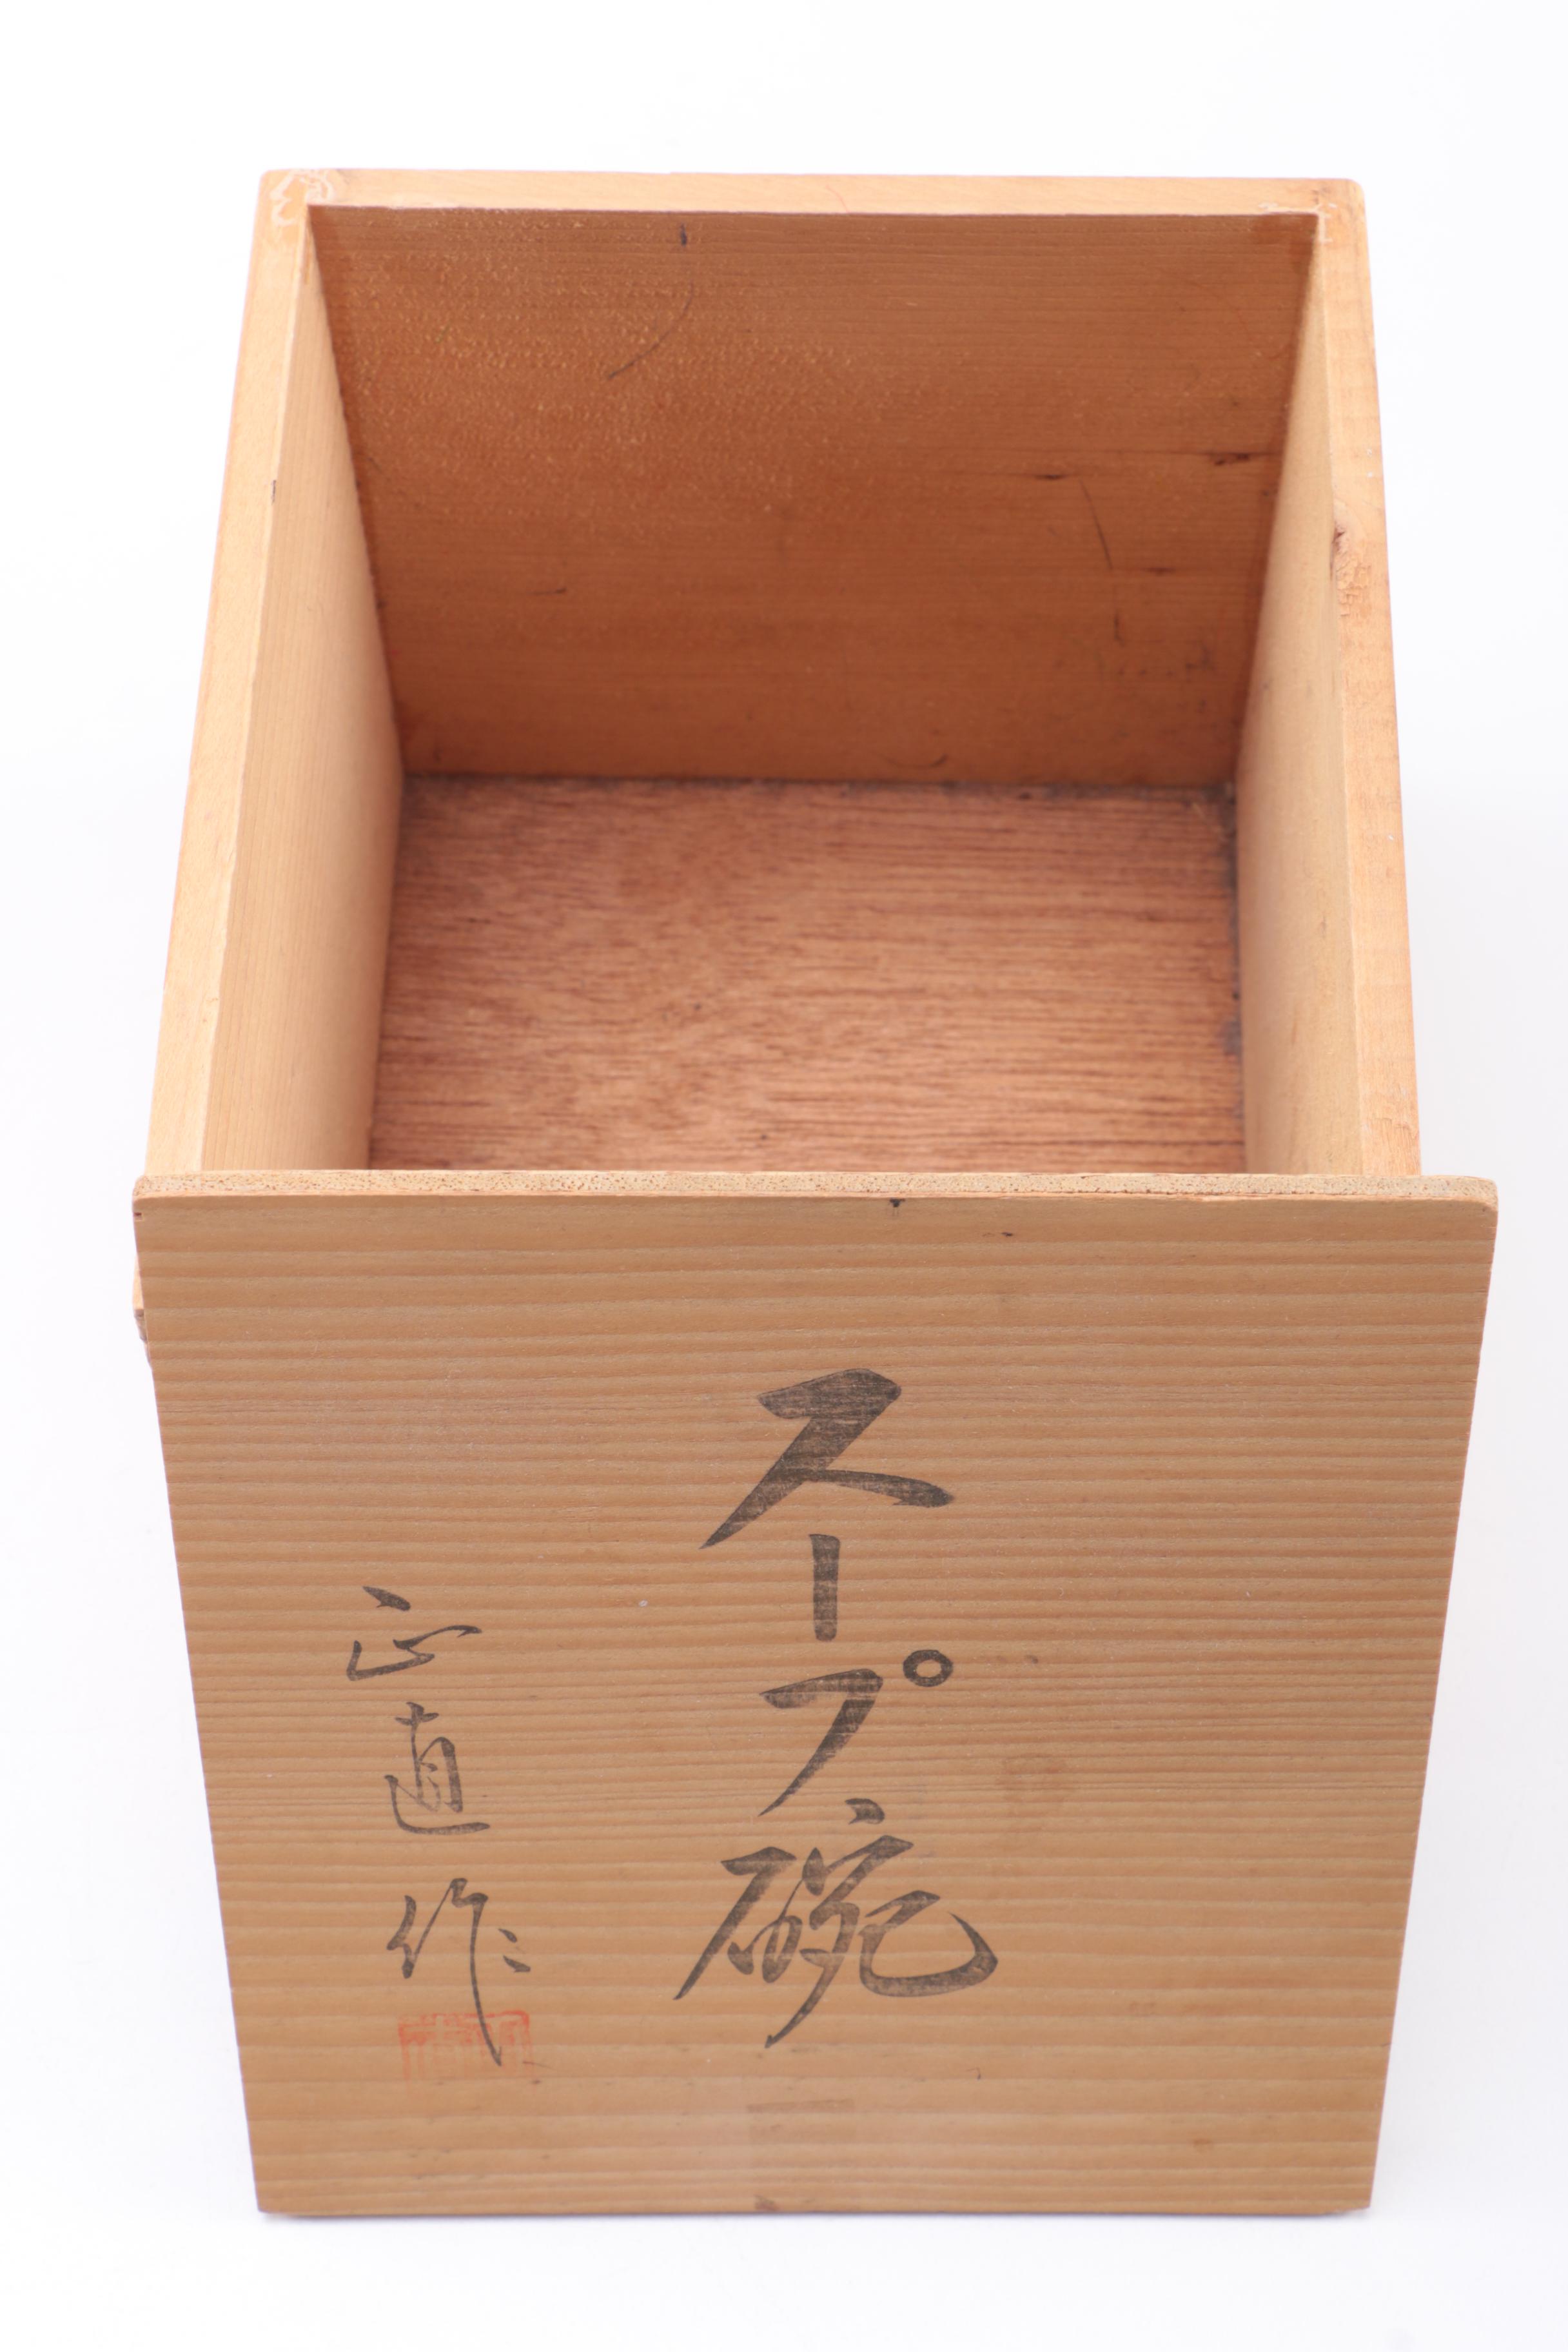 スープ碗
正直作